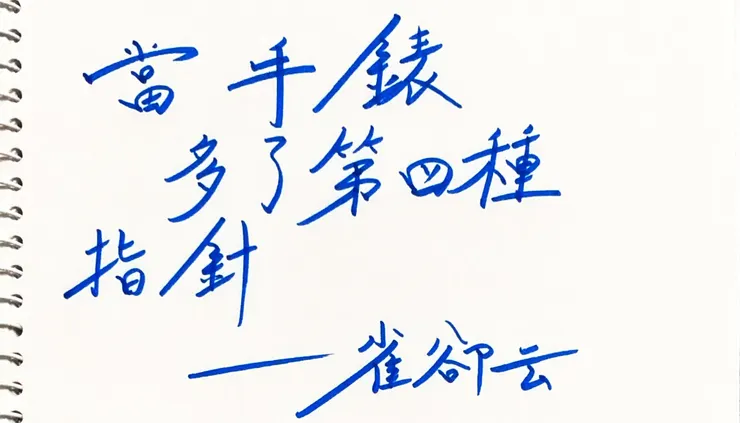 當手錶
多了第四種
指針
——雀卻云